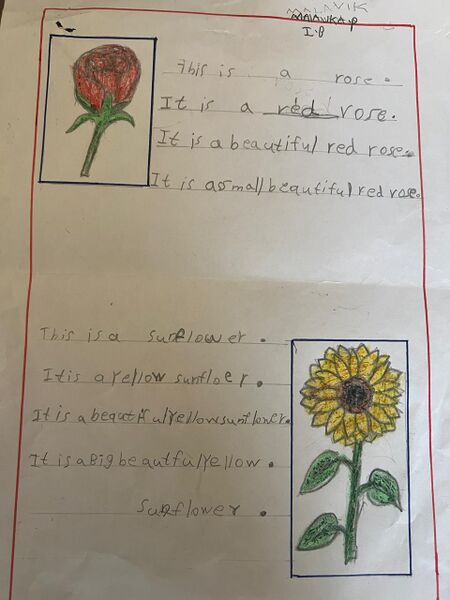 MALAVIK
MALAVIKA.P
I.B
This is a rose.
It is a red rose.
It is a beautiful red rose.
It is a small beautiful red rose.
This is a sunflower.
It is a yellow sunfloer.
It is a beautiful yellow sunflower.
It is a Big beautful yellow.
sunflower.